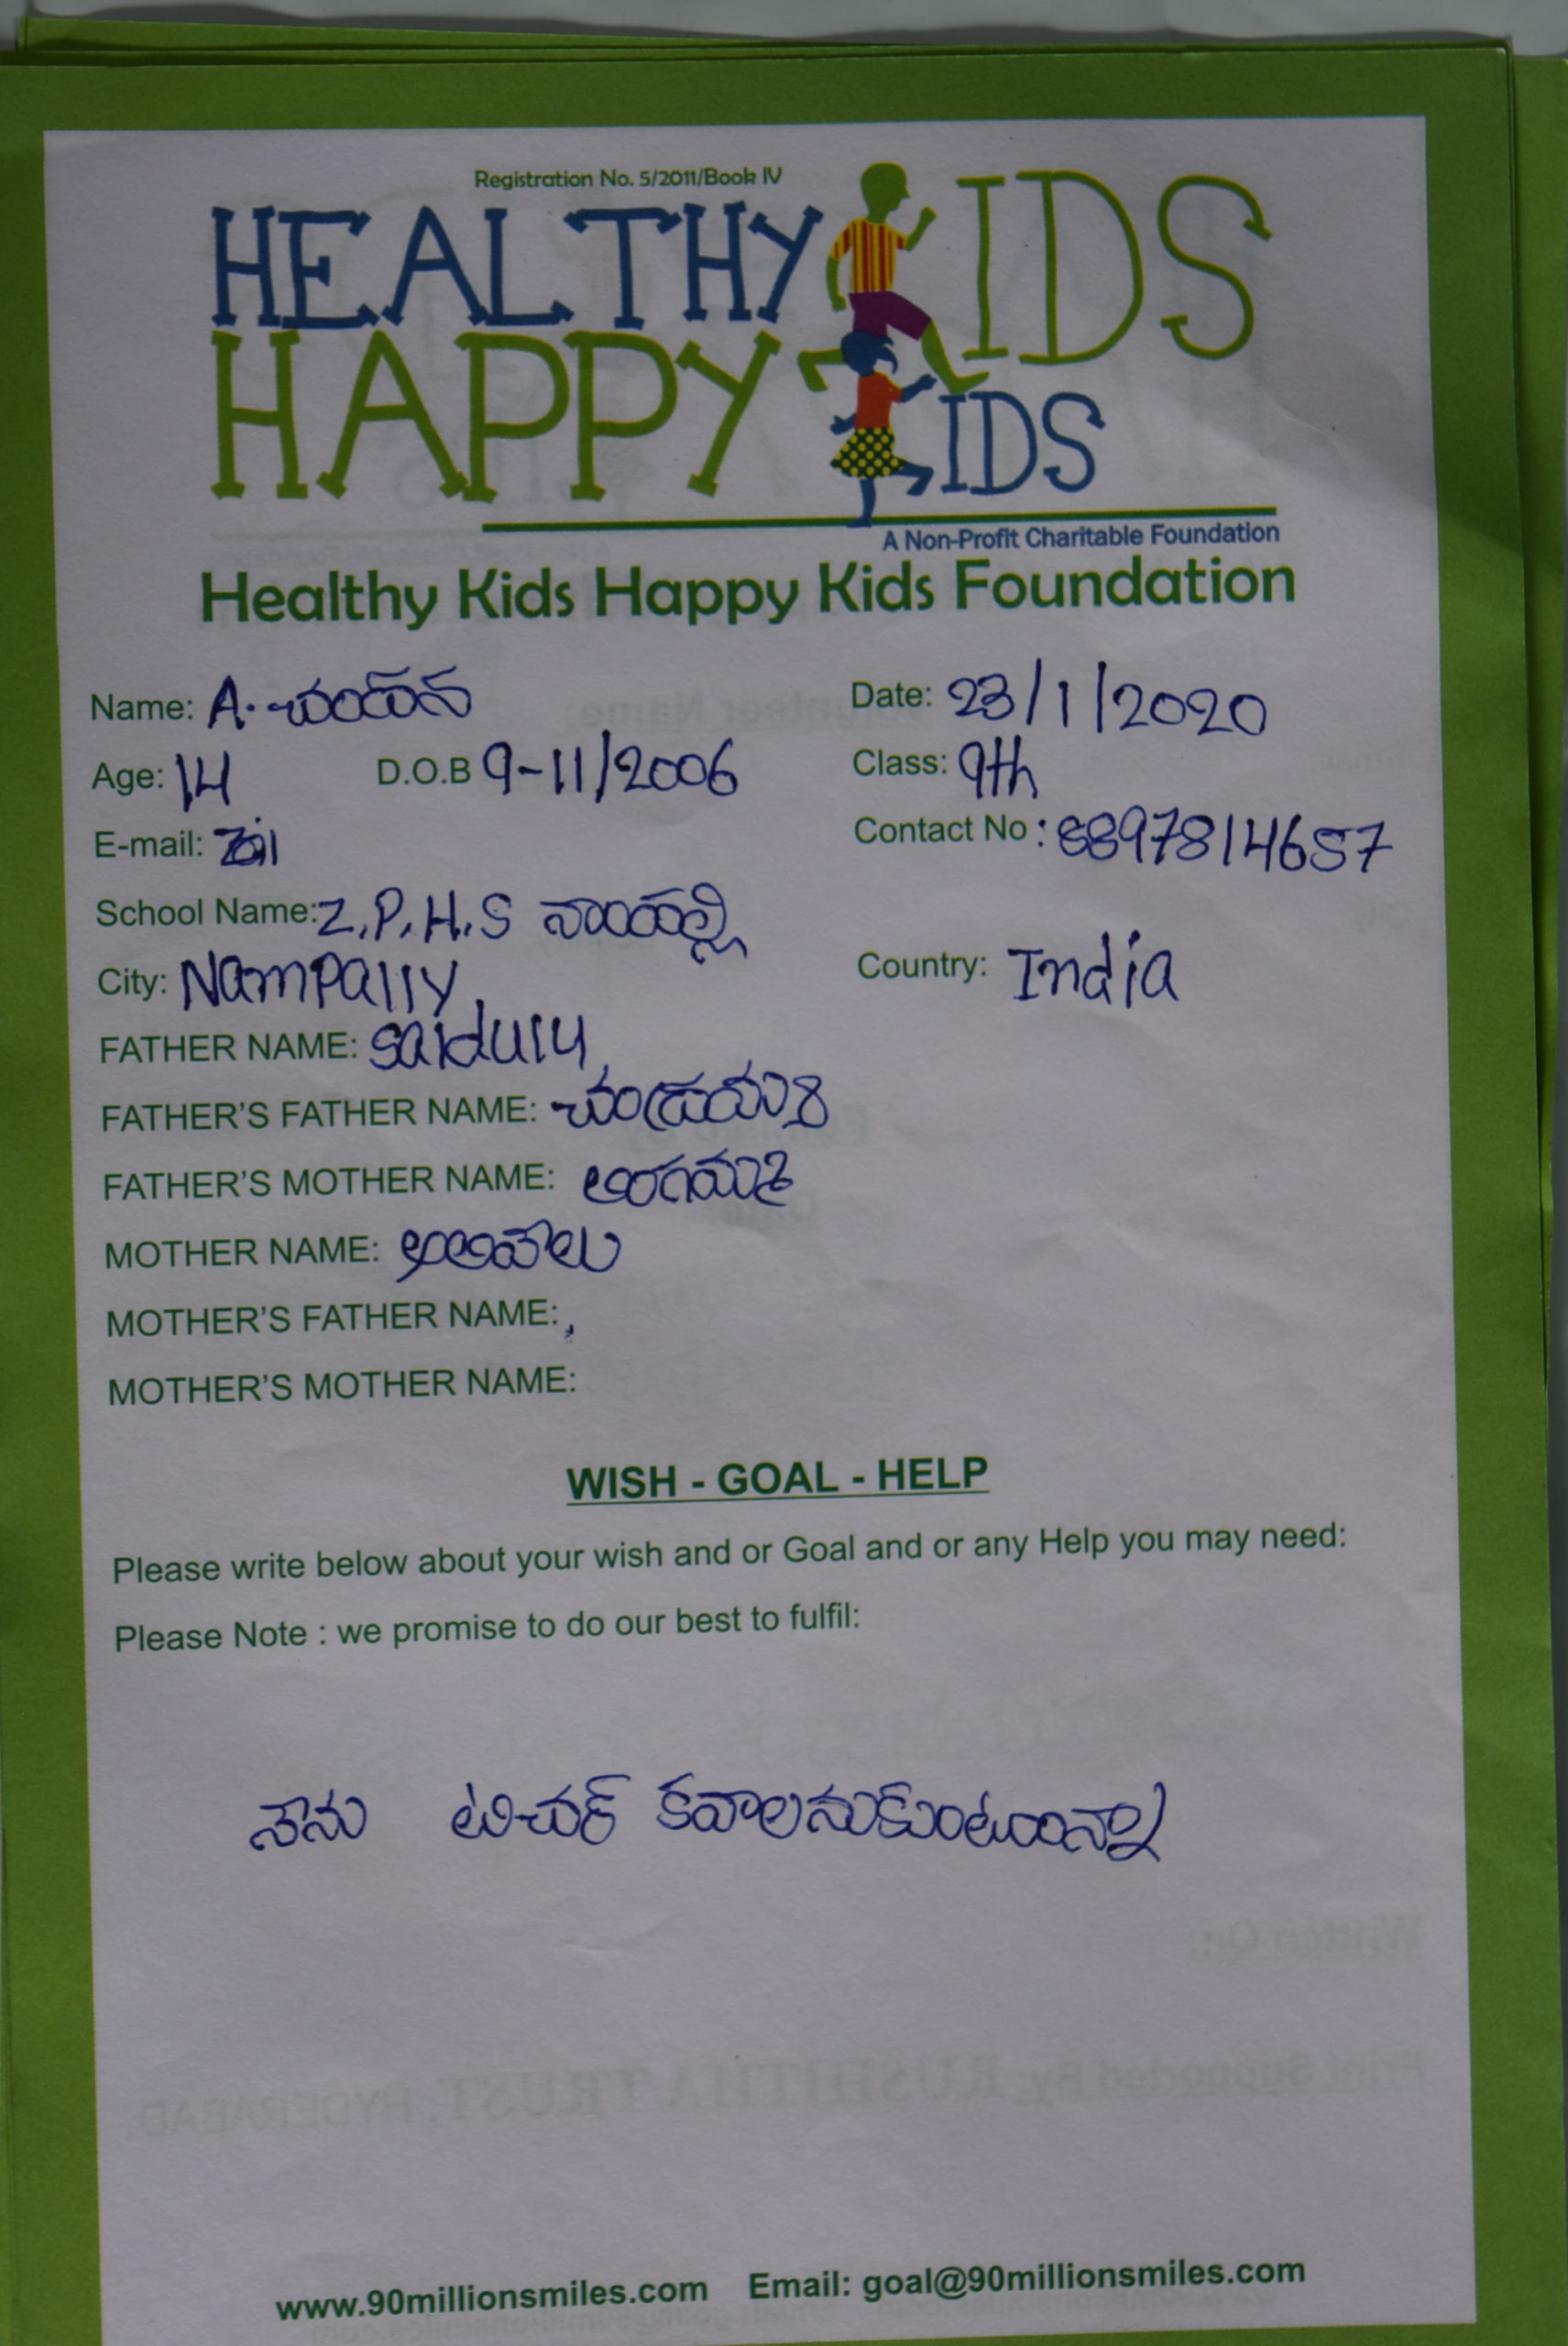 Registration No. 5/2011/Book IV
HEALTHY KIDS
HAPPY KIDS
A Non-Profit Charitable Foundation
Healthy Kids Happy Kids Foundation
Name: A. చందన Date: 23/1/2020
Age: 14 D.O.B 9-11/2006 Class: 9th
E-mail: Contact No : 8897814657
School Name: Z.P.H.S నాంపల్లి
City: Nampally Country: India
FATHER NAME: saidulu
FATHER'S FATHER NAME: చంద్రయ్య
FATHER'S MOTHER NAME:
MOTHER NAME:
MOTHER'S FATHER NAME:
MOTHER'S MOTHER NAME:
WISH - GOAL - HELP
Please write below about your wish and or Goal and or any Help you may need:
Please Note : we promise to do our best to fulfil:
నేను టిచర్ కవాలనుకుంటున్నా
www.90millionsmiles.com Email: goal@90millionsmiles.com